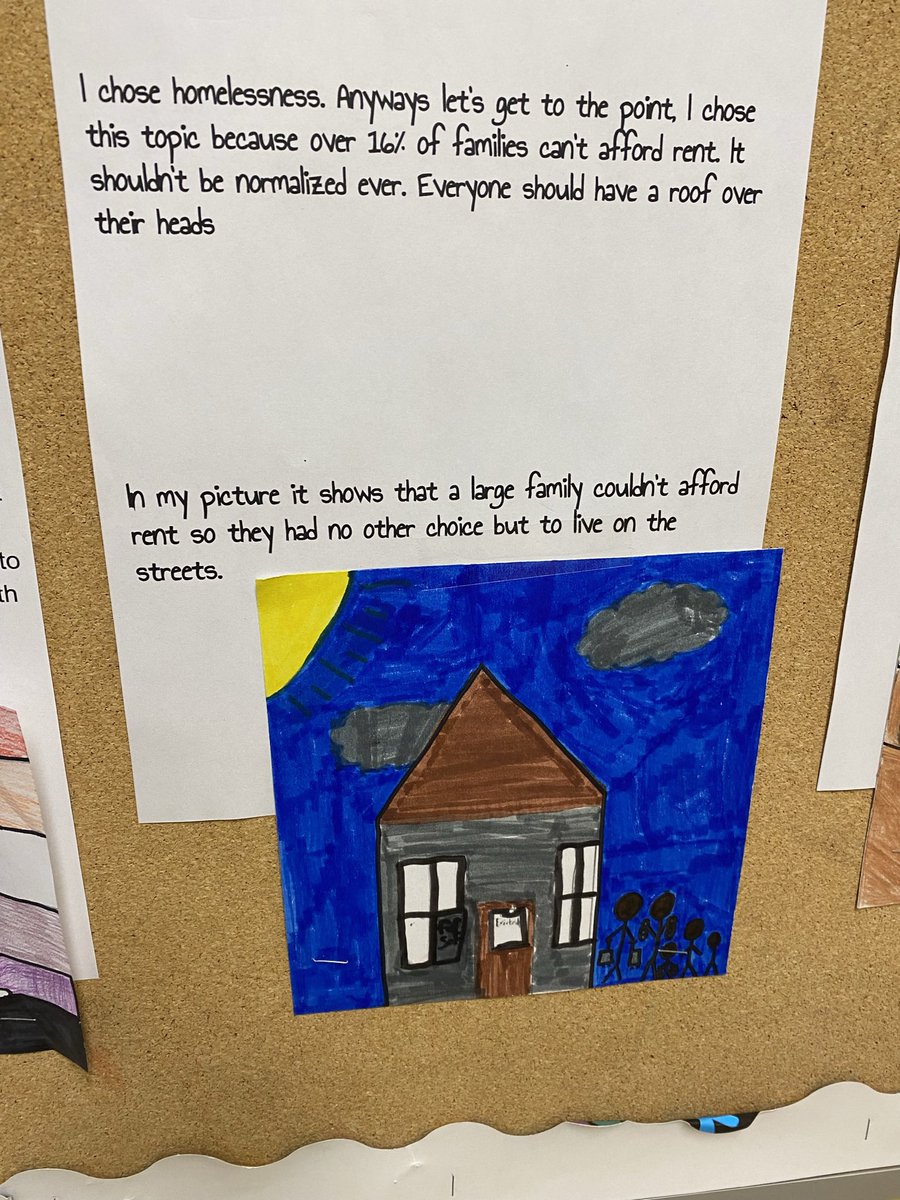 I chose homelessness. Anyways let's get to the point, I chose
this topic because over 16% of families can't afford rent. It
shouldn't be normalized ever. Everyone should have a roof over
their heads
In my picture it shows that a large family couldn't afford
rent so they had no other choice but to live on the
streets.
to
th
Evicted